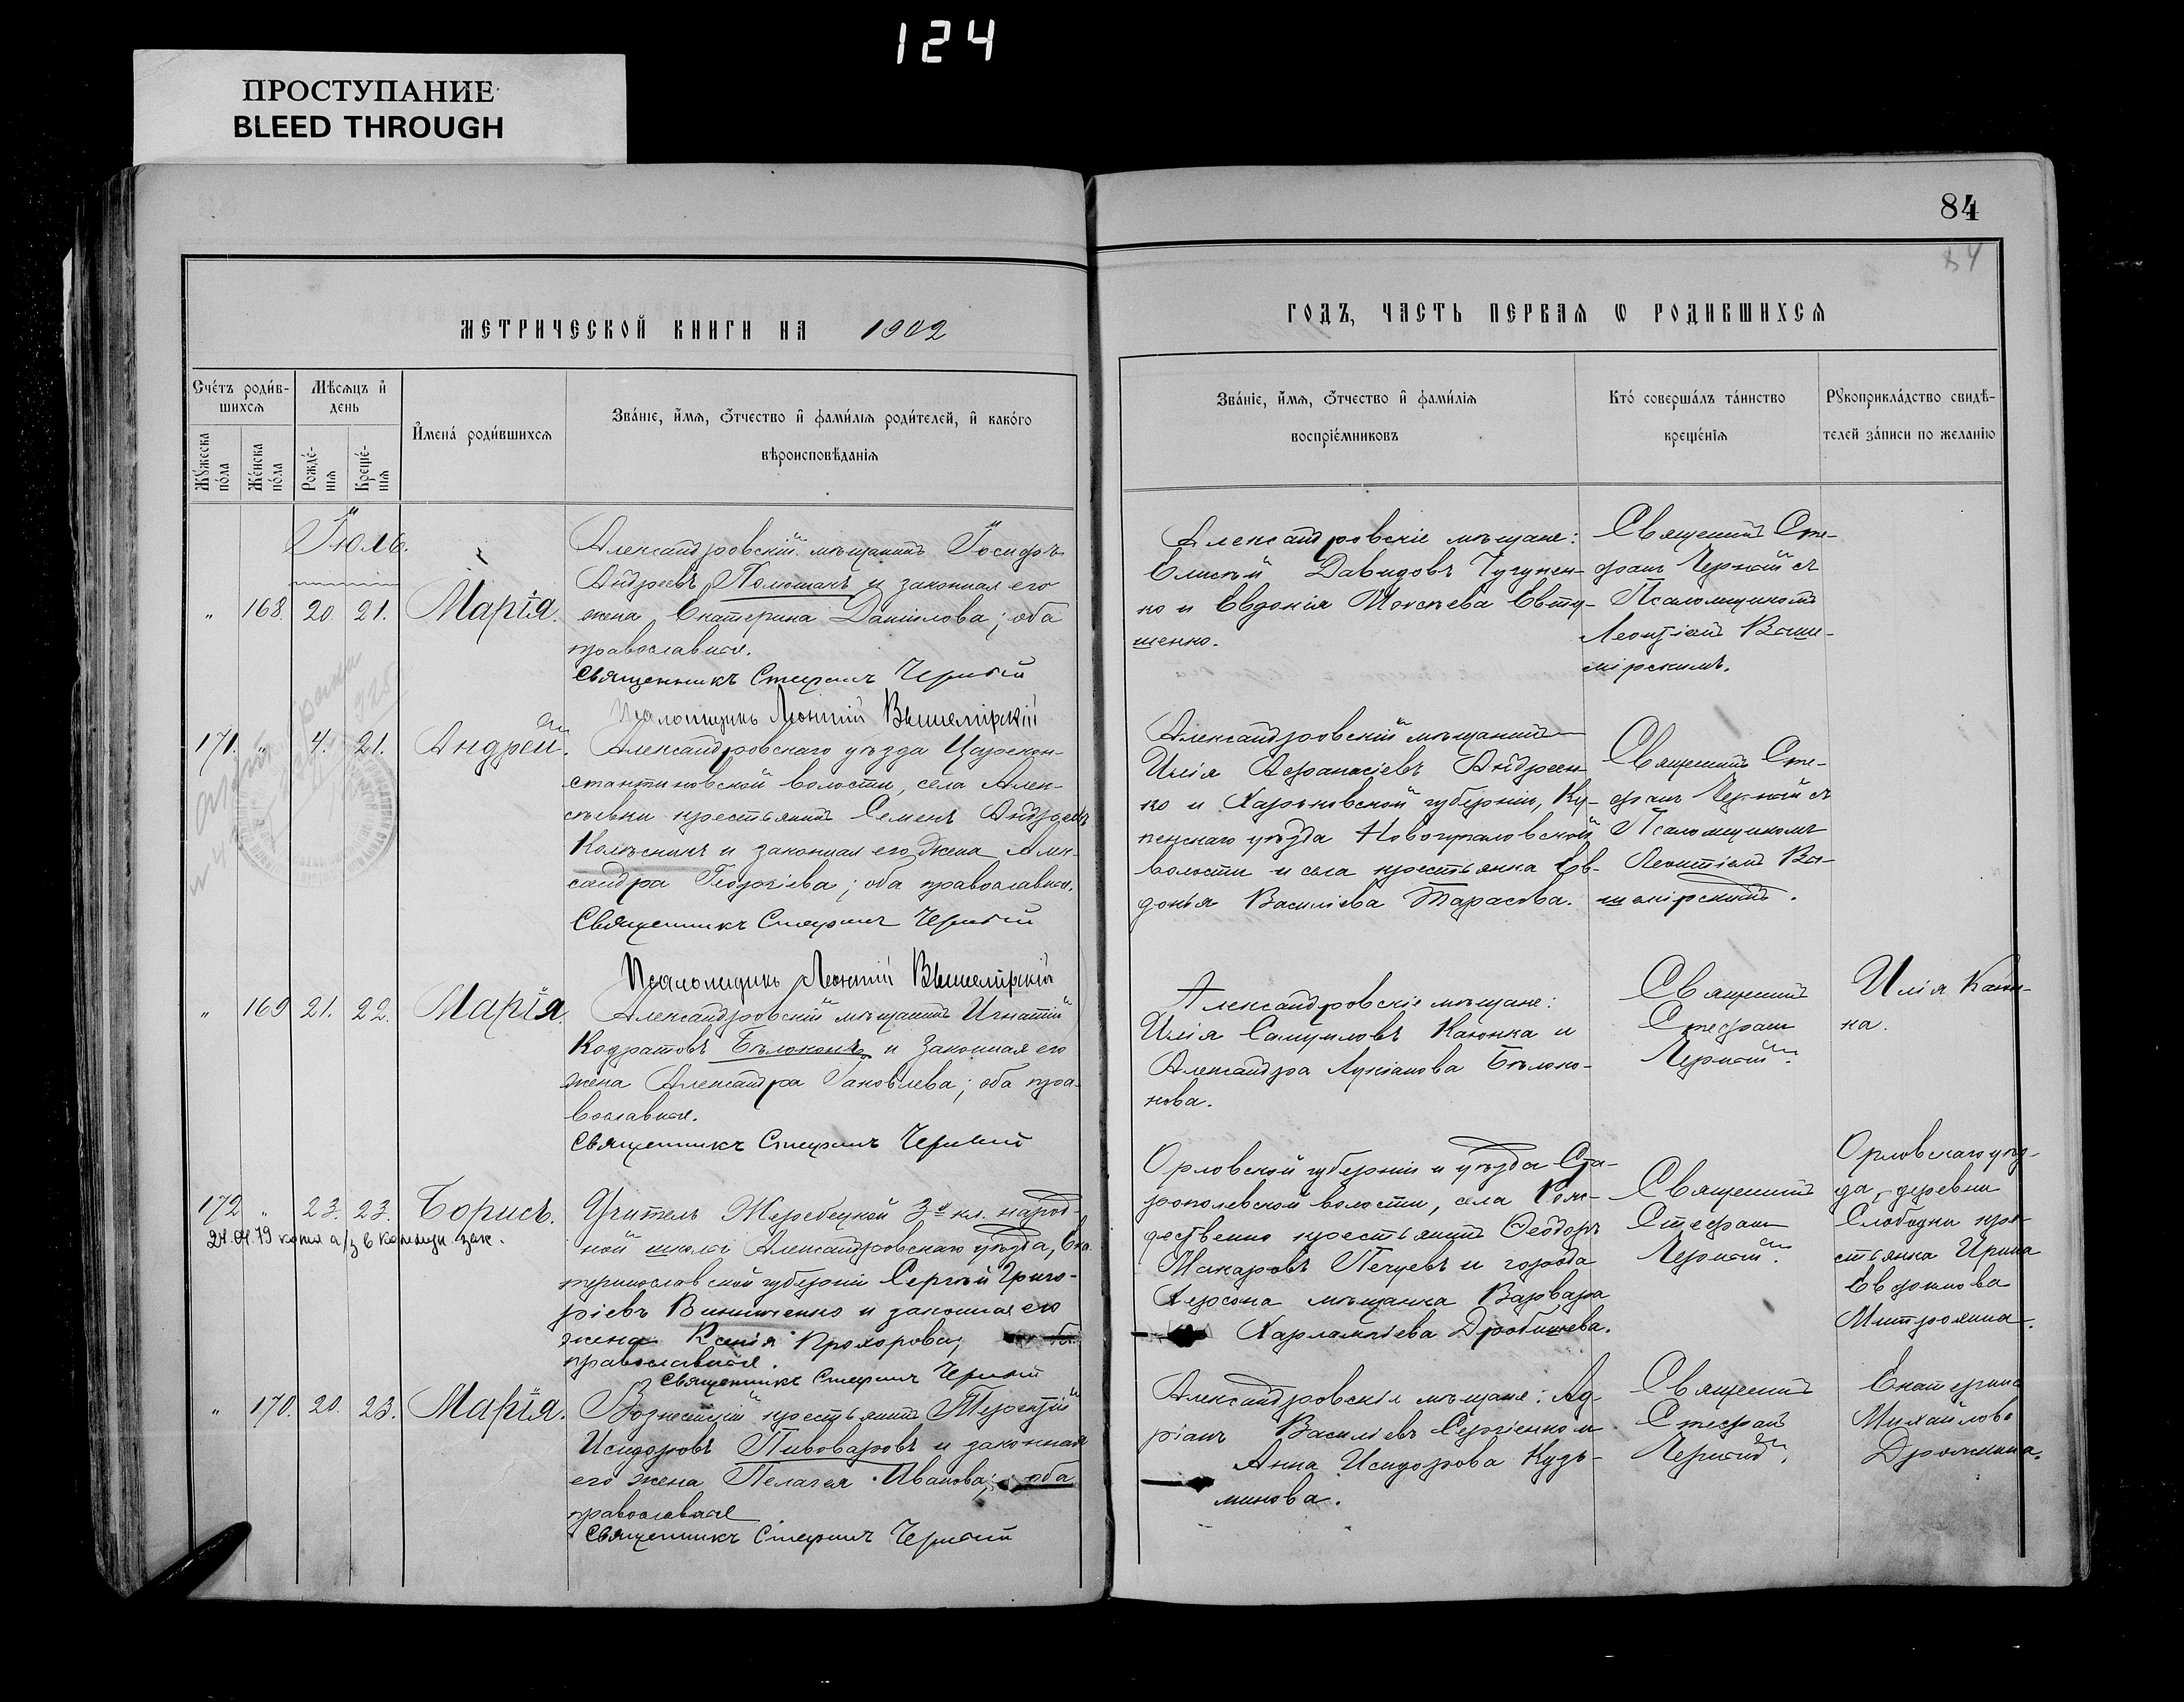 124
ПРОСТУПАНИЕ
BLEED THROUGH
84
84
МЕТРИЧЕСКОЙ КНИГИ НА 1902
ГОДЪ, ЧАСТЬ ПЕРВАЯ Ѡ РОДИВШИХСЯ
Счетъ родив-
шихся
Мѣсяцъ и
день
Мужеска
пола
Женска
пола
Рожде-
нія
Креще-
нія
Имена родившихся
Званіе, имя, отчество и фамилія родителей, и какого
вѣроисповѣданія
Званіе, имя, отчество и фамилія
воспріемниковъ
Кто совершалъ таинство
крещенія
Рукоприкладство свидѣ-
телей записи по желанію
Іюль.
" 168. 20. 21. Марія.
Александровскій мѣщанинъ Іосифъ
Андреевъ и законная его
жена Екатерина Даніилова; оба
православные.
Священникъ Стефанъ Черный
Псаломщикъ Леонтій Вышемірскій
Александровскіе мѣщане:
Елисѣй Давидовъ Чугунен-
ко и Евдокія Евту-
шенко.
Священникъ Сте-
фанъ Черный съ
Псаломщикомъ
Леонтіемъ Выше-
мірскимъ.
171. " 4. 21. Андрей.
Александровскаго уѣзда Царекон-
стантиновской волости, села Алек-
сѣевки крестьянинъ Семенъ Андреевъ
Колѣсникъ и законная его жена Алек-
сандра Георгіева; оба православные.
Священникъ Стефанъ Черный
Псаломщикъ Леонтій Вышемірскій
Александровскій мѣщанинъ
Илія Афанасіевъ Андреен-
ко и Харьковской губерніи, Ку-
пенскаго уѣзда
волости и села крестьянка Ев-
докія Василіева Тарасова.
Священникъ Сте-
фанъ Черный съ
Псаломщикомъ
Леонтіемъ Вы-
шемірскимъ.
" 169 21. 22. Марія.
Александровскій мѣщанинъ Игнатій
Кодратовъ Бѣлоконь и законная его
жена Александра Іаковлева; оба пра-
вославные.
Священникъ Стефанъ Черный
Александровскіе мѣщане:
Илія Самуиловъ Каюнка и
Александра Лукіанова Бѣлоко-
нова.
Священникъ
Стефанъ
Черный.
Илія Каюн-
ка.
172 " 23. 23. Борисъ.
Учитель Жеребецкой 3й кл. народ-
ной школы Александровскаго уѣзда, Ека-
теринославской губерніи Сергѣй Григо-
ріевъ Винниченко и законная его
жена Ксенія Прохорова;
православные.
Священникъ Стефанъ Черный
Орловской губерніи и уѣзда Ста-
ропольской волости, села Рож-
дествено крестьянинъ Ѳеодоръ
Макаровъ и города
Херсона мѣщанка Варвара
Харлампіева Дробишева.
Священникъ
Стефанъ
Черный.
Орловскаго уѣз-
да, деревни
Слободки кре-
стьянка Ирина
Евдокимова
Митрохина.
" 170. 20. 23. Марія.
Вознесенскій крестьянинъ Терентій
Исидоровъ Пивоваровъ и законная
его жена Пелагея Иванова; оба
православные
Священникъ Стефанъ Черный
Александровскіе мѣщане: Ад-
ріанъ Василіевъ Сергіенко и
Анна Исидорова Кузь-
минова.
Священникъ
Стефанъ
Черный.
Екатерина
Михайлова